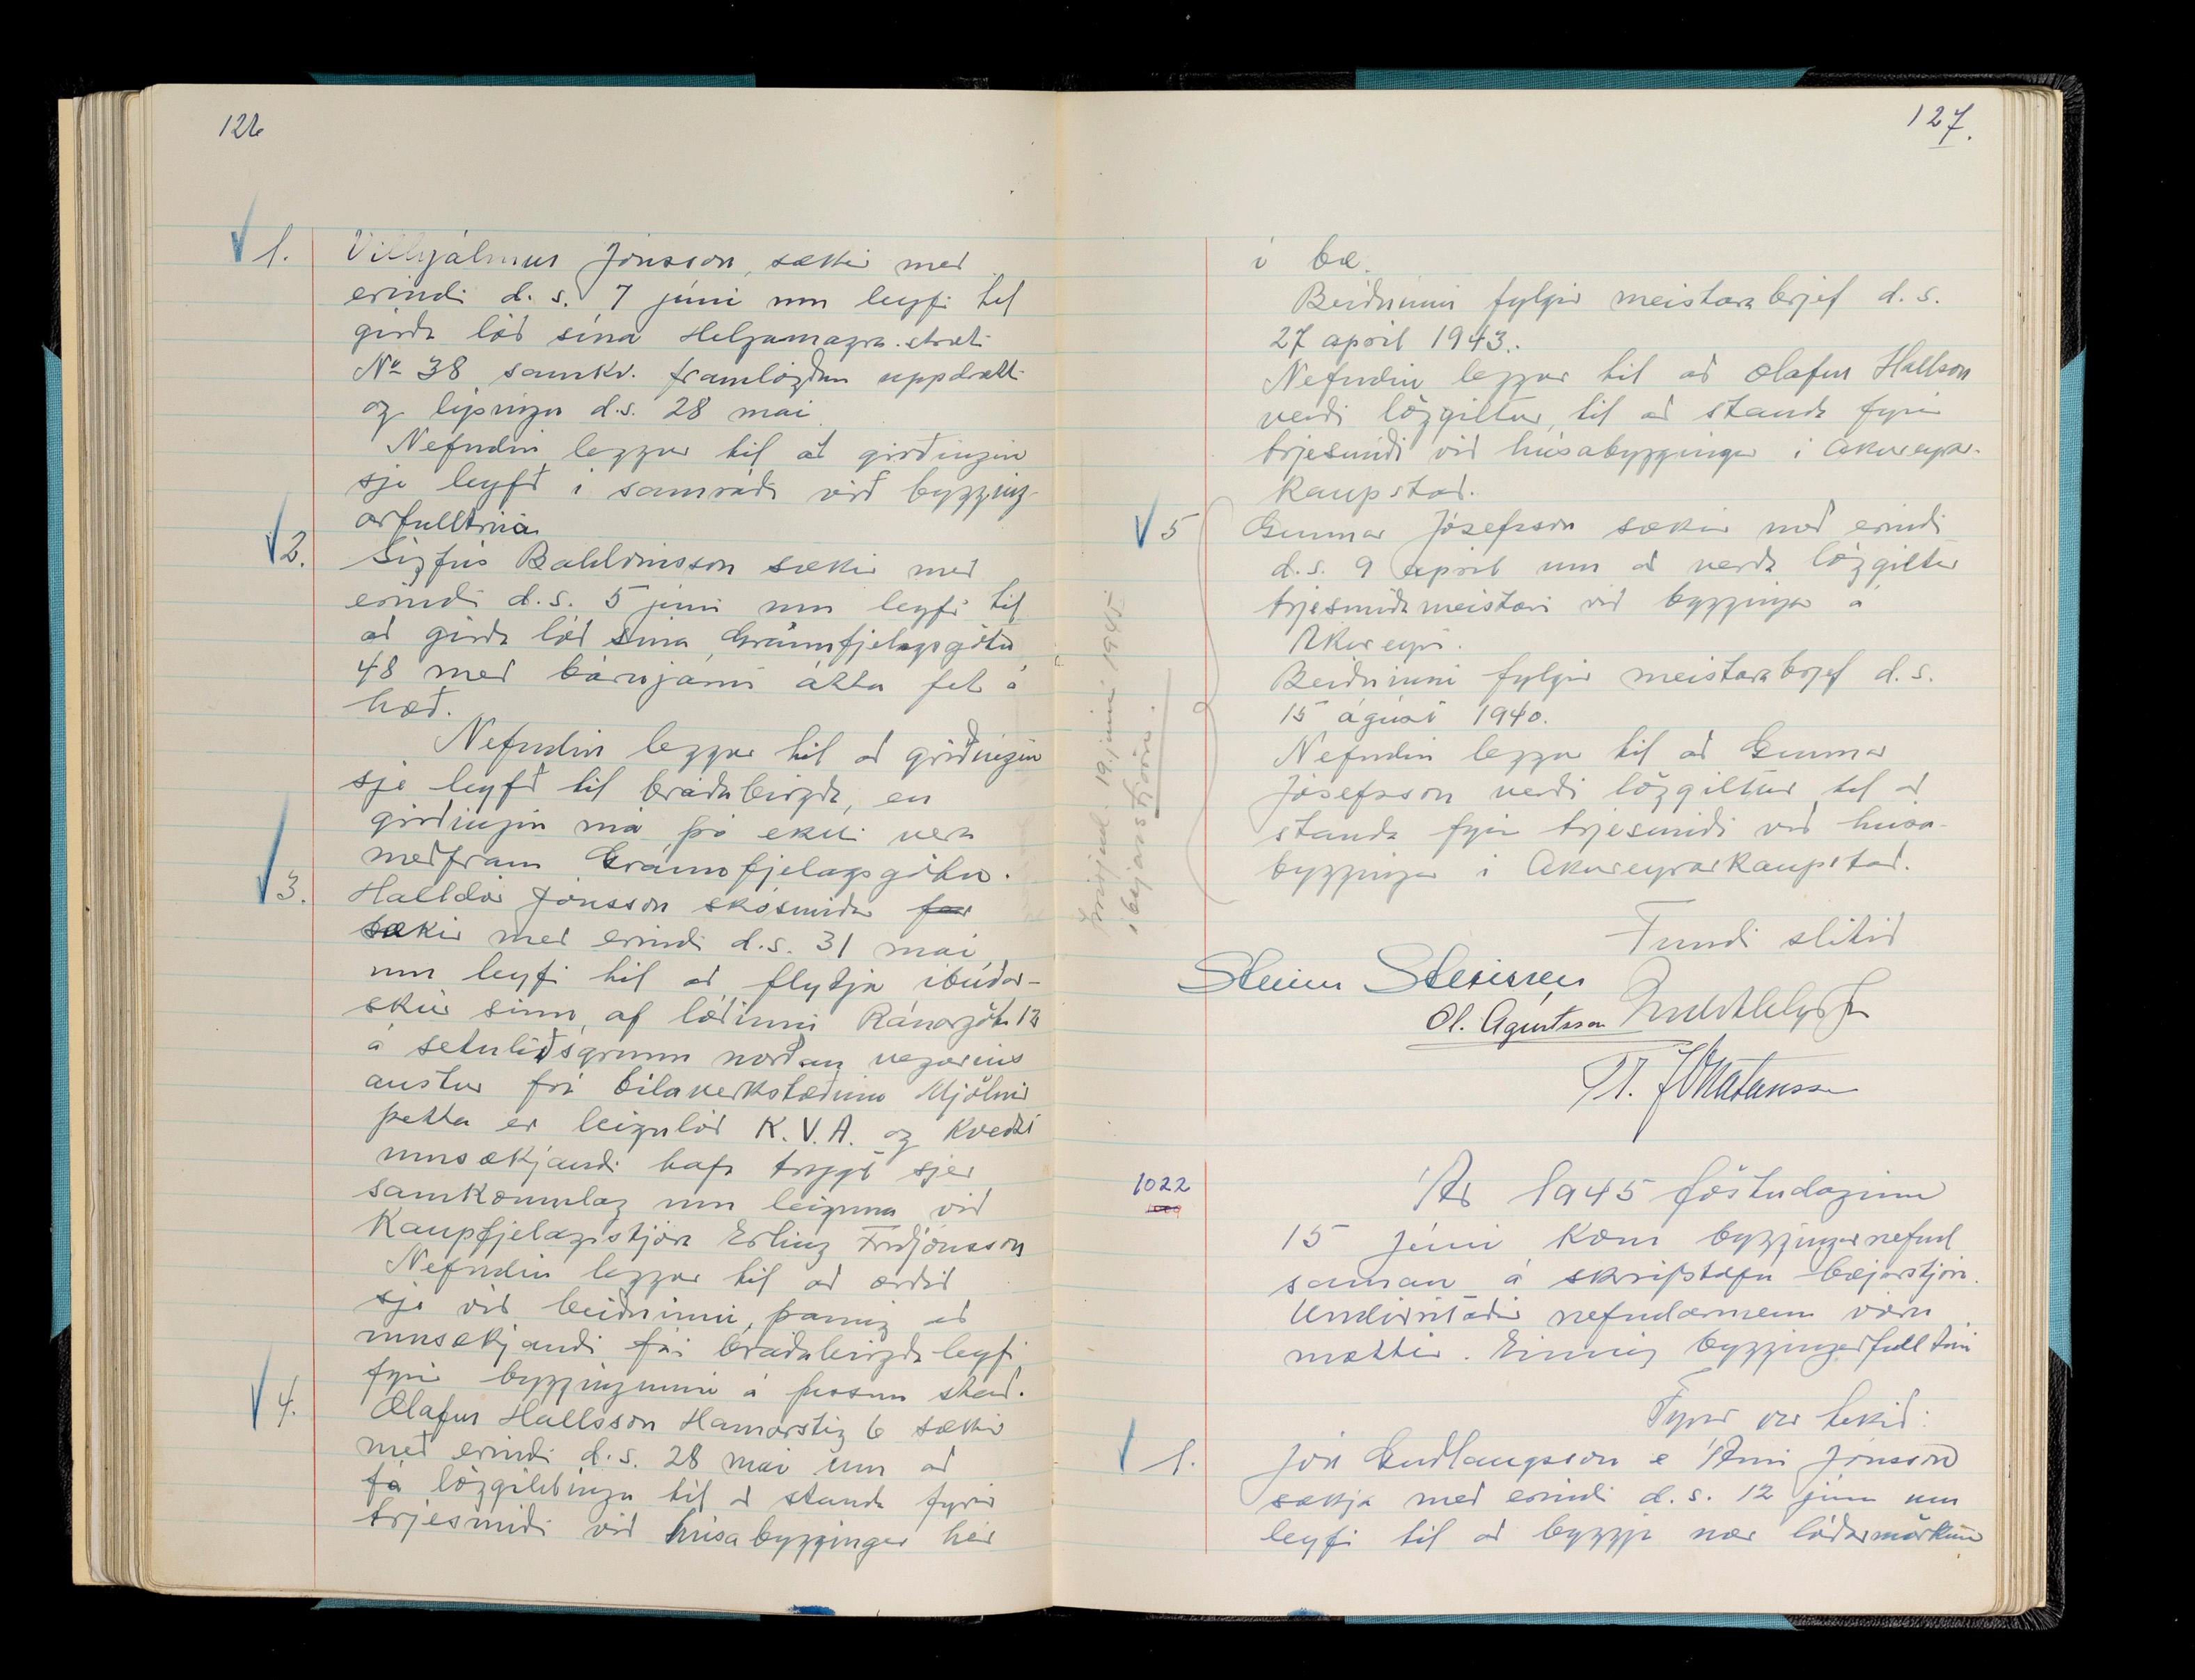 126
1. Vilhjálmur Jónsson, sækir með
erindi d.s. 7 júni um leyfi til
girða lóð sína Helgamagra.stræti
No 38 samkv. framlögðum uppdrætti
og lýsingu d.s. 28 mai
Nefndin leggur til að girðingin
sje leyfð i samráði við bygging-
arfulltrúa
2. Sigfús Baldvinsson sækir með
erindi d.s. 5 júni um leyfi til
að girða lóð sina, Gránufjelagsgötu
48 með bárujárni átta fet á
hæð.
Nefndin leggur til að girðingin
sje leyfð til bráðabirgða, en
girðingin má þó ekki vera
meðfram Gránufjelagsgötu.
3. Halldór Jónsson skósmiður fær
sækir með erindi d.s. 31 mai,
um leyfi til að flytja ibúðar-
skúr sinn, af lóðinni Ránargötu 12
á setuliðsgrunn norðan vegarins
austur frá bilaverkstæðinu Mjölnir
þetta er leigulóð K.V.A. og kveðst
umsækjandi hafa tryggt sjer
samkomulag um leiguna við
Kaupfjelagsstjóra Erling Friðjónsson
Nefndin leggur til að orðið
sje við beiðninni, þannig að
umsækjandi fái bráðabirgða leyfi
fyrir byggingunni á þessum stað.
4. Ólafur Hallsson Hamarstig 6 sækir
með erindi d.s. 28 mai um að
fá löggildingu til að standa fyrir
trjesmiði við húsabyggingar hér
127.
i bæ.
Beiðninni fylgir meistarabrjef d.s.
27 april 1943.
Nefndin leggur til að Ólafur Hallson
verði löggiltur, til að standa fyrir
trjesmiði við húsabyggingar i Akureyrar-
kaupstað.
5 Gunnar Jósefsson sækir með erindi
d.s. 9 april um að verða löggiltur
trjesmiðameistari við byggingar á
Akureyri.
Beiðninni fylgir meistarabrjef d.s.
15 ágúst 1940.
Nefndin leggur til að Gunnar
Jósefsson verði löggiltur til að
standa fyrir trjesmiði við húsa-
byggingar i Akureyrarkaupstað.
19. júni 1945
i bæjarstjórn.
Fundi slitið
Steinn Steinsen
Ól. Ágústsson
1022
Ár 1945 föstudaginn
15 júni kom byggingarnefnd
saman á skrifstofu bæjarstjóra.
Undirritaðir nefndarmenn voru
mættir. Einnig byggingarfulltrúi
Fyrir var tekið:
1. Jón Guðlaugsson & Árni Jónsson
sækja með erindi d.s. 12 júni um
leyfi til að byggja nær lóðarmörkum